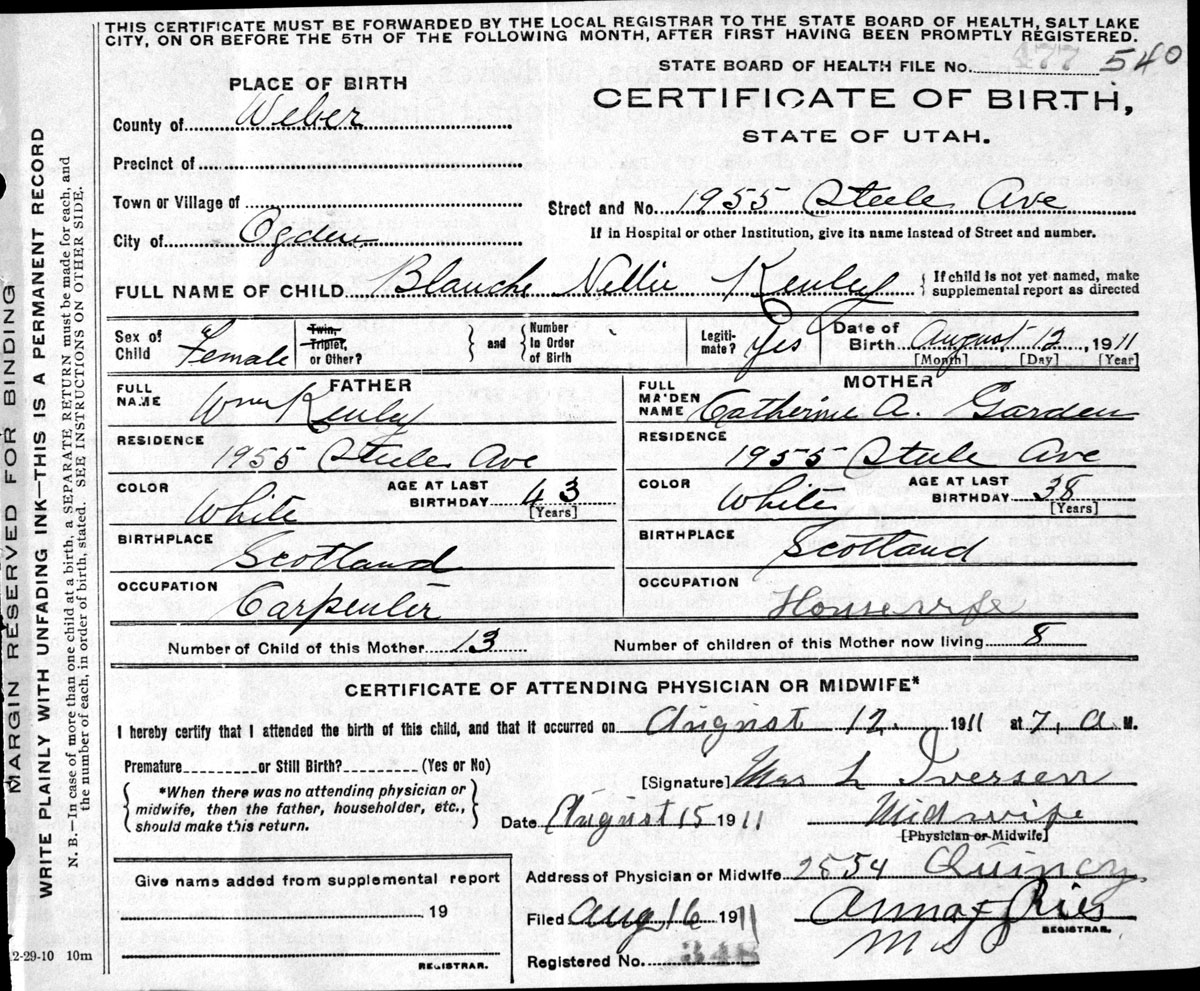 THIS CERTIFICATE MUST BE FORWARDED BY THE LOCAL REGISTRAR TO THE STATE BOARD OF HEALTH, SALT LAKE
CITY, ON OR BEFORE THE 5TH OF THE FOLLOWING MONTH, AFTER FIRST HAVING BEEN PROMPTLY REGISTERED.
STATE BOARD OF HEALTH FILE No. 477 540
PLACE OF BIRTH
CERTIFICATE OF BIRTH,
STATE OF UTAH.
County of Weber
Precinct of
Town or Village of
Street and No. 1955 Steele Ave
City of Ogden
If in Hospital or other Institution, give its name instead of Street and number.
FULL NAME OF CHILD Blanche Nellie Kenley { If child is not yet named, make
supplemental report as directed
Sex of Child Female
Twin, Triplet, or Other?
} and {
Number in Order of Birth
Legiti-mate? Yes
Date of Birth August 12, 1911
[Month] [Day] [Year]
FATHER
FULL NAME Wm Kenley
MOTHER
FULL MAIDEN NAME Catherine A. Garden
RESIDENCE 1955 Steele Ave
RESIDENCE 1955 Steele Ave
COLOR White AGE AT LAST BIRTHDAY 43 [Years]
COLOR White AGE AT LAST BIRTHDAY 38 [Years]
BIRTHPLACE Scotland
BIRTHPLACE Scotland
OCCUPATION Carpenter
OCCUPATION Housewife
Number of Child of this Mother 13
Number of children of this Mother now living 8
CERTIFICATE OF ATTENDING PHYSICIAN OR MIDWIFE*
I hereby certify that I attended the birth of this child, and that it occurred on August 12, 1911 at 7, a M.
Premature or Still Birth? (Yes or No)
[Signature] Mrs L Iversen
{ *When there was no attending physician or
midwife, then the father, householder, etc.,
should make this return. }
Date August 15 1911 Midwife
[Physician or Midwife]
Address of Physician or Midwife. 2554 Quincy
Give name added from supplemental report
19
REGISTRAR.
Filed Aug 16 1911 Anna F Ries
REGISTRAR.
M S
Registered No. 348
2-29-10 10m
MARGIN RESERVED FOR BINDING
WRITE PLAINLY WITH UNFADING INK—THIS IS A PERMANENT RECORD
N. B.—In case of more than one child at a birth, a SEPARATE RETURN must be made for each, and
the number of each, in order of birth, stated. SEE INSTRUCTIONS ON OTHER SIDE.